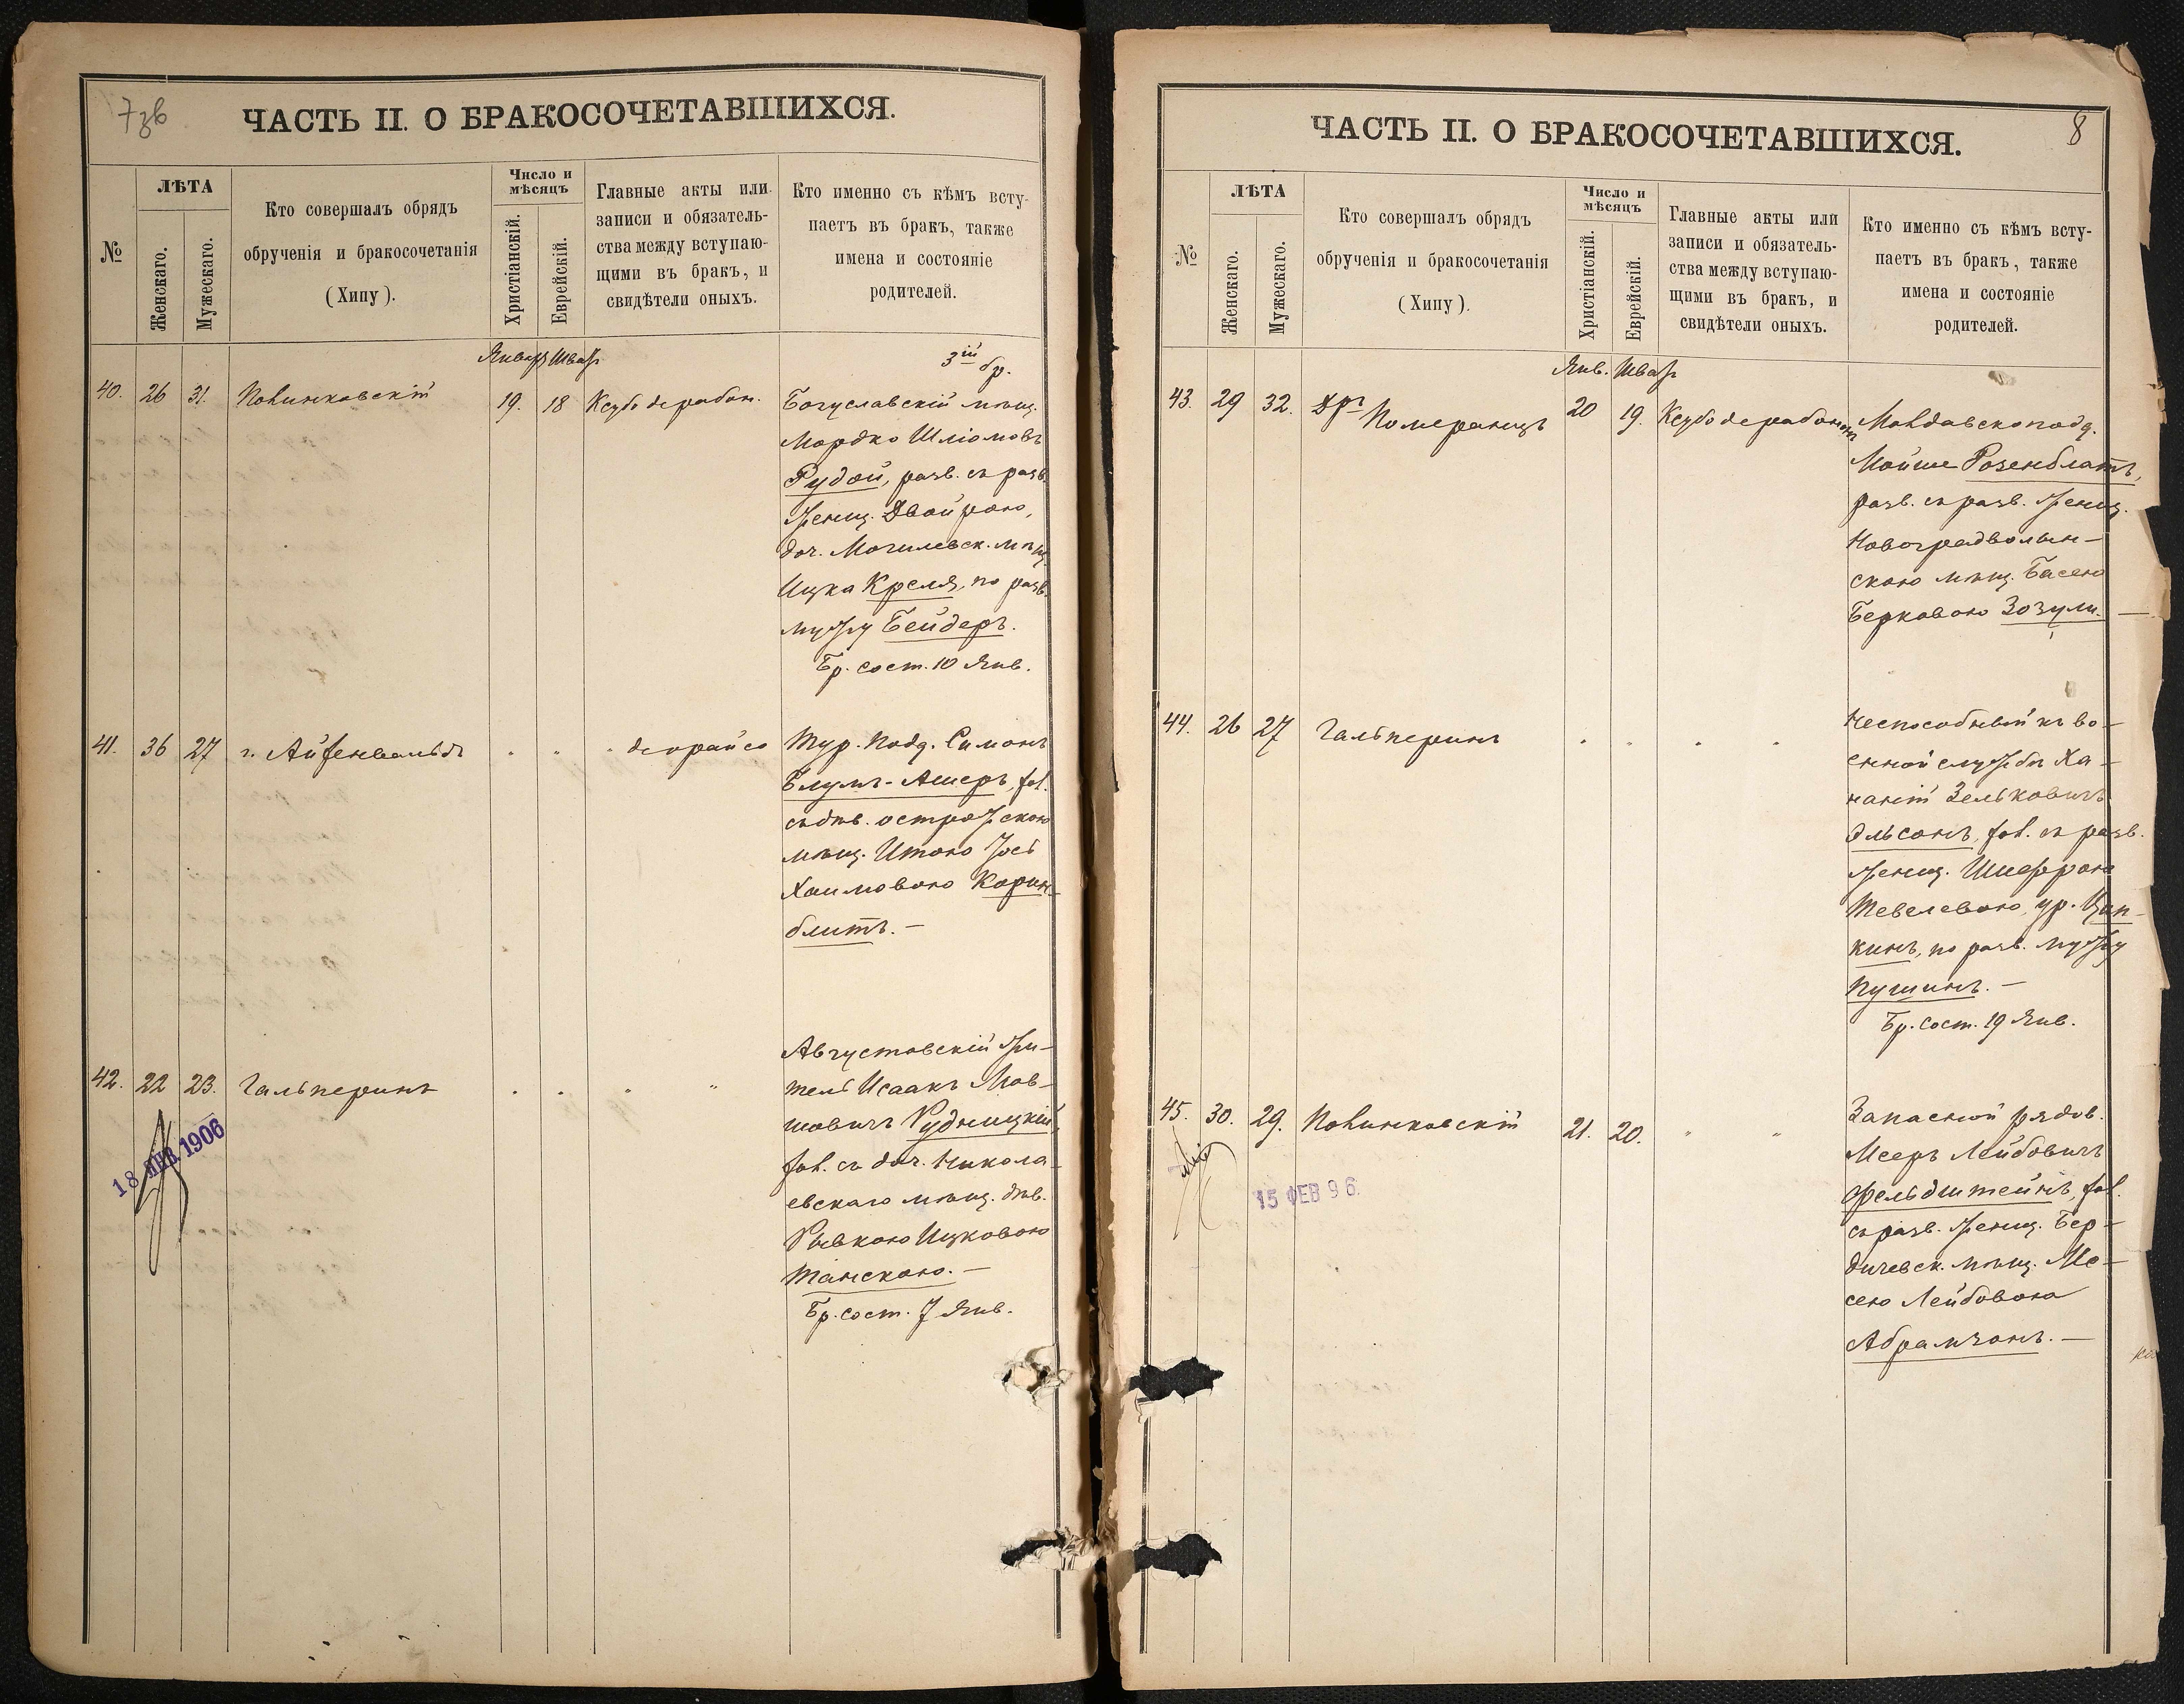 7зв
ЧАСТЬ II. О БРАКОСОЧЕТАВШИХСЯ.
№
ЛѢТА
Женскаго.
Мужескаго.
Кто совершалъ обрядъ
обрученія и бракосочетанія
(Хипу).
Число и
мѣсяцъ
Христіанскій.
Еврейскій.
Главные акты или
записи и обязатель-
ства между вступаю-
щими въ бракъ, и
свидѣтели оныхъ.
Кто именно съ кѣмъ всту-
паетъ въ бракъ, также
имена и состояніе
родителей.
Январь Шватъ
3ій бр.
40. 26 31. Полинковскій 19. 18 Ксубо дерабон.
Богуславскій мѣщ.
Мордко Шліомовъ
Рудой, разв. съ разв.
женщ. Двойрою,
доч. Могилевск. мѣщ.
Ицка Креля, по разв.
мужу Бейдеръ.
Бр. сост. 10 Янв.
41. 36 27 г. Айзенвальдъ " " " деорайсо
Тур. подд. Симонъ
Блумъ-Ашеръ, хол.
съ дѣв. острожскою
мѣщ. Итою Іось
Хаимовою Корин-
блитъ. —
42. 22 23. Гальперинъ " " " "
Августовскій жи-
тель Исаакъ Мов-
шовичъ Рудницкій,
хол. съ доч. Никола-
евскаго мѣщ. дѣв.
Рывкою Ицковою
Танскою. —
Бр. сост. 7 Янв.
18 ЯНВ. 1906
8
ЧАСТЬ II. О БРАКОСОЧЕТАВШИХСЯ.
№
ЛѢТА
Женскаго.
Мужескаго.
Кто совершалъ обрядъ
обрученія и бракосочетанія
(Хипу).
Число и
мѣсяцъ
Христіанскій.
Еврейскій.
Главные акты или
записи и обязатель-
ства между вступаю-
щими въ бракъ, и
свидѣтели оныхъ.
Кто именно съ кѣмъ всту-
паетъ въ бракъ, также
имена и состояніе
родителей.
Янв. Шват
43. 29 32. Дръ Померанцъ 20 19. Ксубо дерабононъ
Молдавскоподд.
Мойше Розенблатъ,
разв. съ разв. женщ.
Новоградволын-
скою мѣщ. Басею
Берковою Зозули. —
44. 26 27 Гальперинъ " " " "
Неспособный къ во-
енной службѣ Ха-
наній Зельковичъ
Эльсонъ, хол. съ разв.
женщ. Шифрою
Тевелевою, ур. Цып-
кинъ, по разв. мужу
Пушинъ. —
Бр. сост. 19 Янв.
45. 30. 29. Полинковскій 21. 20. " "
Запасной рядов.
Мееръ Лейбовичъ
Фельдштейнъ, хол.
съ разв. женщ. Бер-
дичевск. мѣщ. Мо-
сею Лейбовою
Абрамзонъ. —
15 ФЕВ 96.